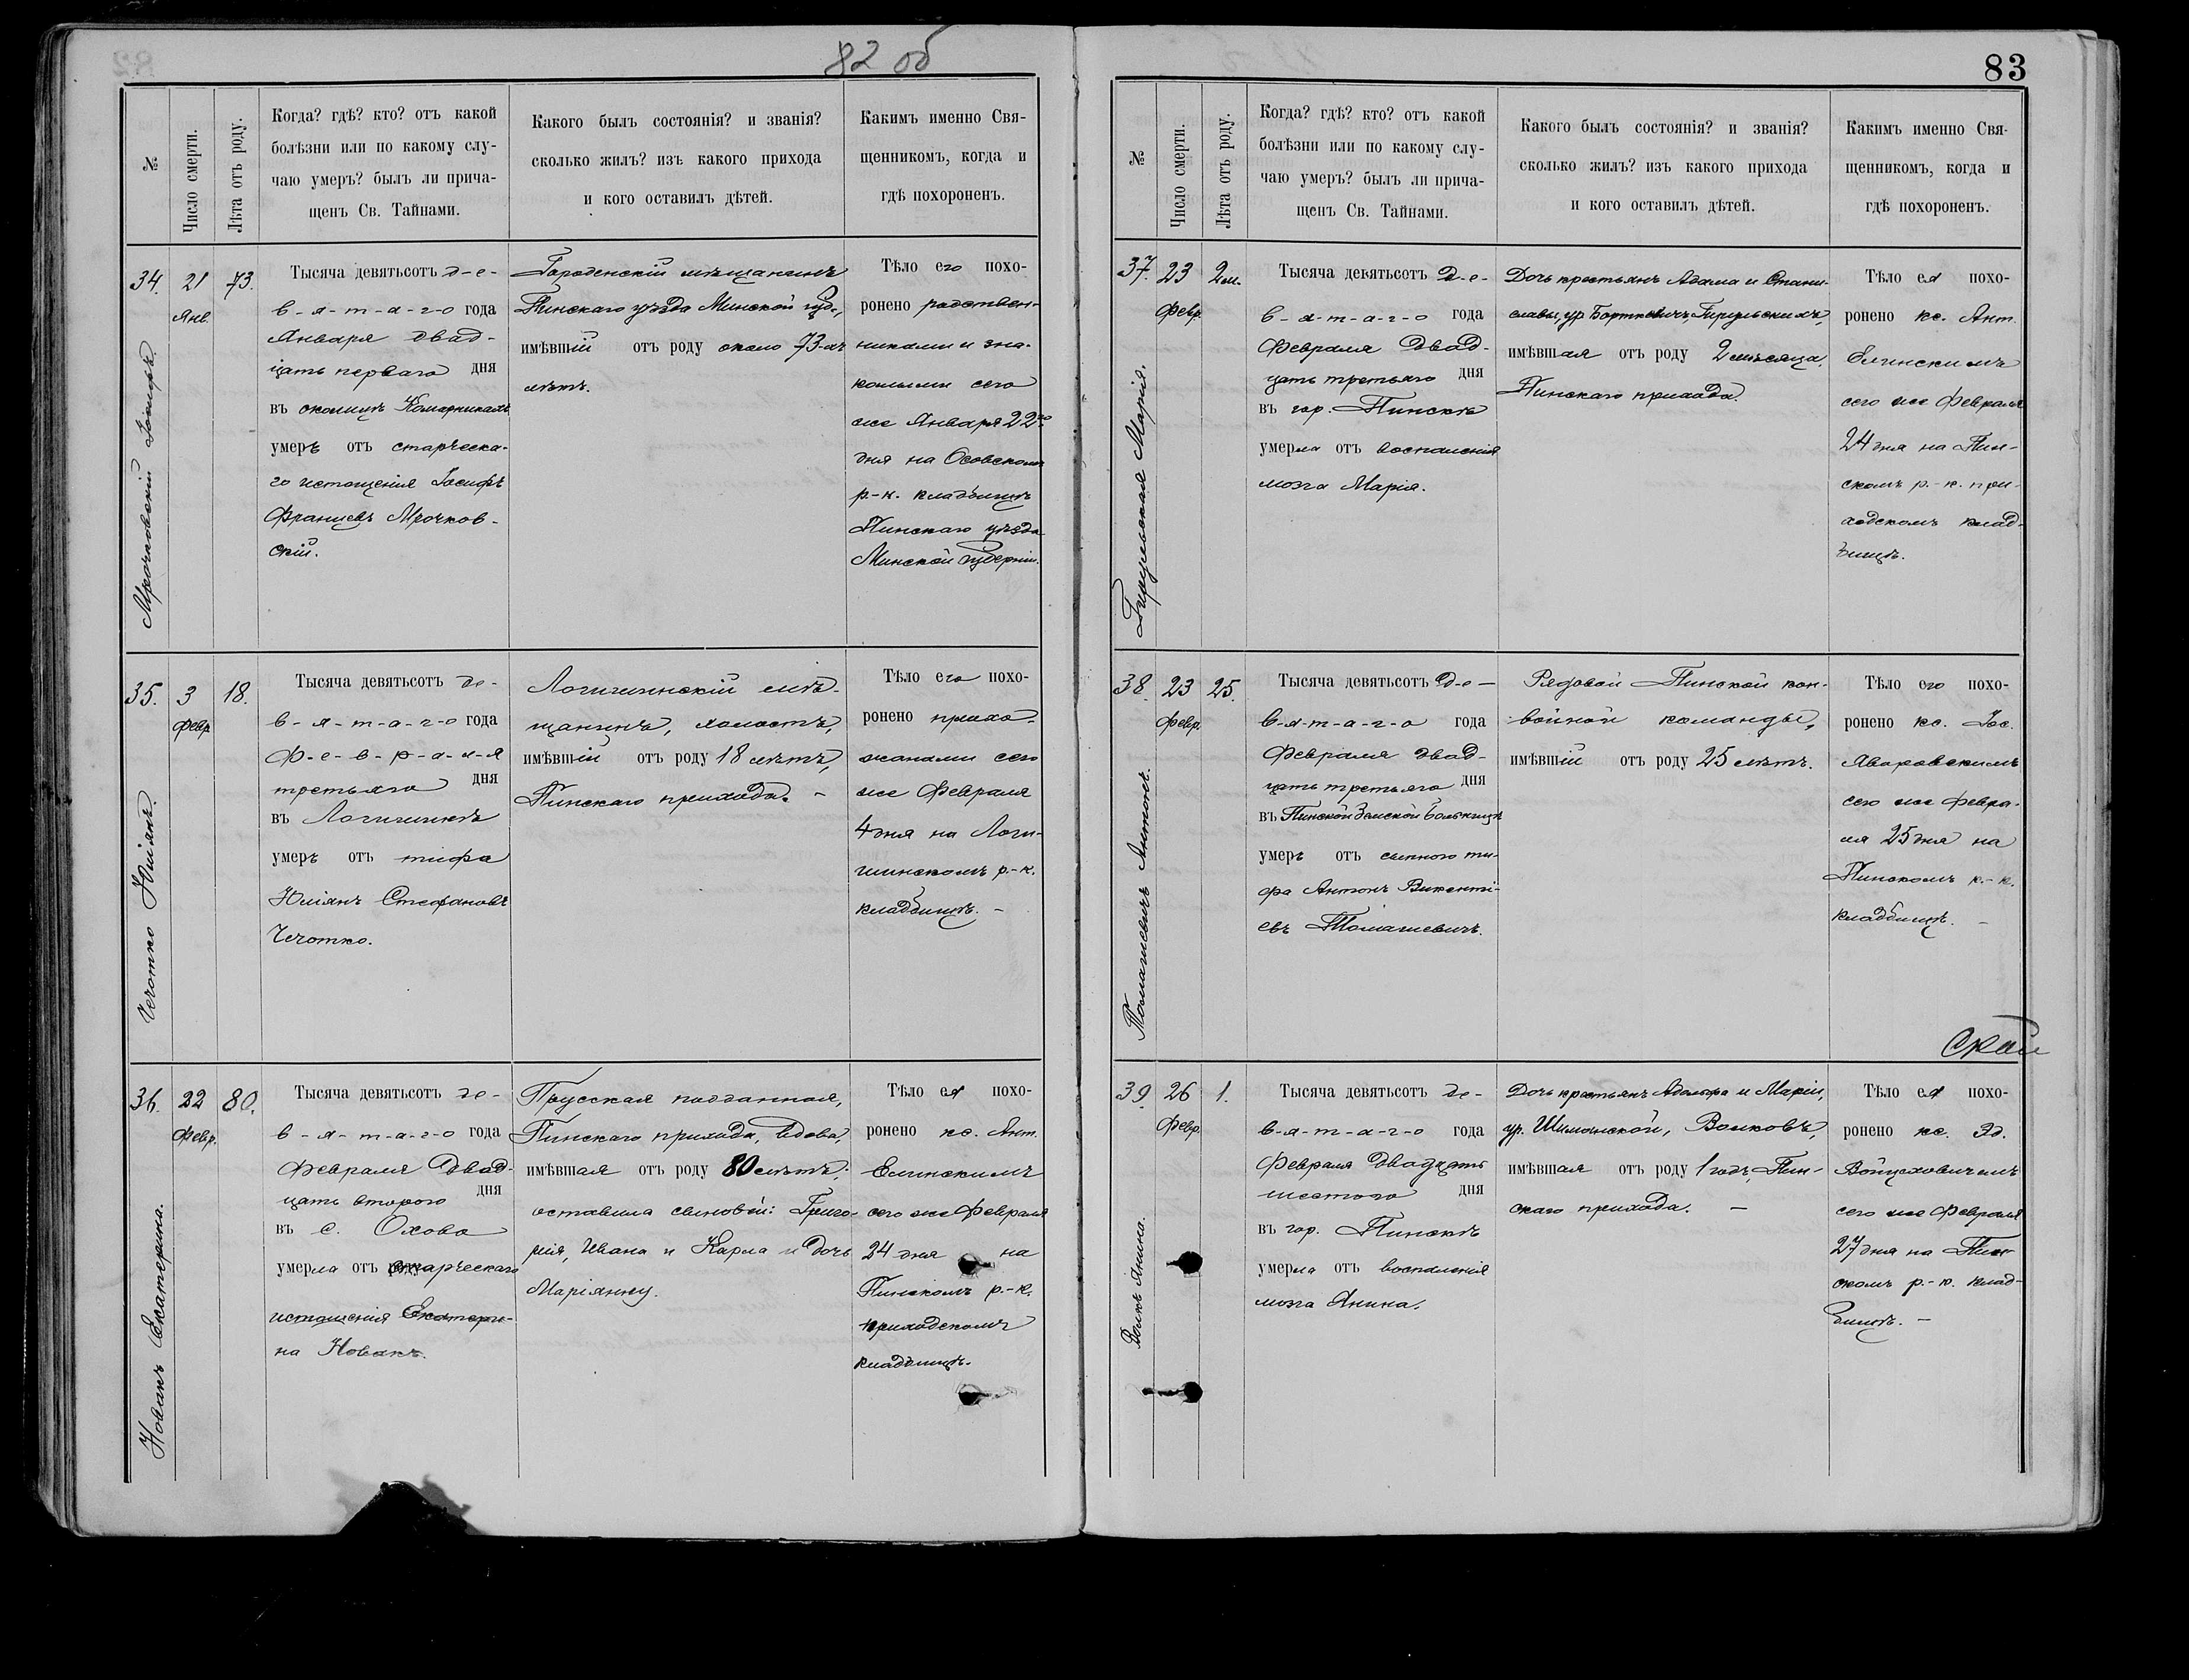 82 об
№
Число смерти.
Лѣта отъ роду.
Когда? гдѣ? кто? отъ какой
болѣзни или по какому слу-
чаю умеръ? былъ ли прича-
щенъ Св. Тайнами.
Какого былъ состоянія? и званія?
сколько жилъ? изъ какого прихода
и кого оставилъ дѣтей.
Какимъ именно Свя-
щенникомъ, когда и
гдѣ похороненъ.
34.
Мрочковскій Іосифъ.
21
Янв.
73.
Тысяча девятьсотъ д-е-
в-я-т-а-г-о года
Января двад-
цать перваго дня
въ околицѣ Комарникахъ
умеръ отъ старческа-
го истощенія Іосифъ
Францевъ Мрочков-
скій.
Городенскій мѣщанинъ
Пинскаго уѣзда Минской губ.,
имѣвшій отъ роду около 73-хъ
лѣтъ.
Тѣло его похо-
ронено родствен-
никами и зна-
комыми сего
же Января 22го
дня на Осовскомъ
р-к. кладбищѣ
Пинскаго уѣзда
Минской губерніи.
35.
Чечотко Юліанъ.
3
Февр.
18.
Тысяча девятьсотъ де-
в-я-т-а-г-о года
Ф-е-в-р-а-л-я
третьяго дня
въ Логишинѣ
умеръ отъ тифа
Юліанъ Стефановъ
Чечотко.
Логишинскій мѣ-
щанинъ, холостъ,
имѣвшій отъ роду 18 лѣтъ,
Пинскаго прихода. -
Тѣло его похо-
ронено прихо-
жанами сего
же Февраля
4 дня на Логи-
шинскомъ р-к.
кладбищѣ. -
36.
Новакъ Екатерина.
22
Февр.
80.
Тысяча девятьсотъ де-
в-я-т-а-г-о года
Февраля двад-
цать второго дня
въ с. Охово
умерла отъ старческаго
истощенія Екатери-
на Новакъ.
Прусская подданная,
Пинскаго прихода, вдова,
имѣвшая отъ роду 80 лѣтъ;
оставила сыновей: Григо-
рія, Ивана и Карла и дочь
Маріянну.
Тѣло ея похо-
ронено кс. Ант.
Елинскимъ
сего же Февраля
24 дня на
Пинскомъ р.-к.
приходскомъ
кладбищѣ.
83
№
Число смерти.
Лѣта отъ роду.
Когда? гдѣ? кто? отъ какой
болѣзни или по какому слу-
чаю умеръ? былъ ли прича-
щенъ Св. Тайнами.
Какого былъ состоянія? и званія?
сколько жилъ? изъ какого прихода
и кого оставилъ дѣтей.
Какимъ именно Свя-
щенникомъ, когда и
гдѣ похороненъ.
37.
Марія.
23
Февр.
2 м.
Тысяча девятьсотъ д-е-
в-я-т-а-г-о года
Февраля двад-
цать третьяго дня
въ гор. Пинскѣ
умерла отъ воспаленія
мозга Марія.
Дочь крестьянъ Адама и Стани-
славы, ур. Борткевичъ,
имѣвшая отъ роду 2 мѣсяца,
Пинскаго прихода.
Тѣло ея похо-
ронено кс. Ант.
Елинскимъ
сего же Февраля
24 дня на Пин-
скомъ р.-к. при-
ходскомъ клад-
бищѣ.
38.
Томашевичъ Антонъ.
23
Февр.
25.
Тысяча девятьсотъ д-е-
в-я-т-а-г-о года
Февраля двад-
цать третьяго дня
въ Пинской Земской больницѣ
умеръ отъ сыпного ти-
фа Антонъ Викенті-
евъ Томашевичъ.
Рядовой Пинской кон-
войной команды,
имѣвшій отъ роду 25 лѣтъ.
Тѣло его похо-
ронено кс. Іос.
Яворовскимъ
сего же Февра-
ля 25 дня на
Пинскомъ р.-к.
кладбищѣ. -
39.
Волкъ Янина.
26
Февр.
1.
Тысяча девятьсотъ де-
в-я-т-а-г-о года
Февраля двадцать
шестого дня
въ гор. Пинскѣ
умерла отъ воспаленія
мозга Янина.
Дочь крестьянъ Адольфа и Маріи,
ур. Шиманской, Волковъ,
имѣвшая отъ роду 1 годъ, Пин-
скаго прихода. -
Тѣло ея похо-
ронено кс. Эд.
Войцеховичемъ
сего же Февраля
27 дня на Пин-
скомъ р.-к. клад-
бищѣ. -